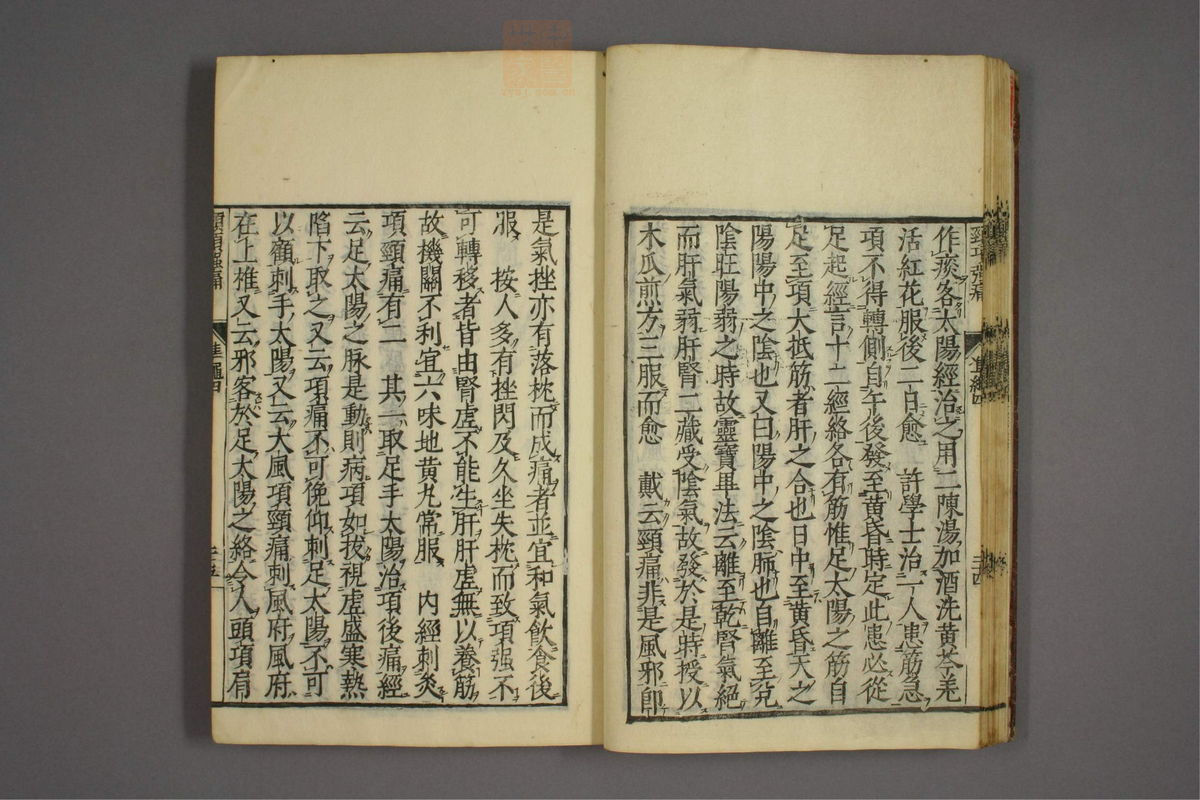 作痰客太陽經治之用二陳湯加酒洗黄芩羌
活紅花服後二日愈　許學士治一人患筋急
項不得轉側自午後發至黄昏時定此患必從
足起經言十二經絡各有筋惟足太陽之筋自
足至項大抵筋者肝之合也日中至黄昏天之
陽陽中之陰也又曰陽中之陰肺也自離至兌
陰旺陽弱之時故靈寶畢法云離至乾腎氣絕
而肝氣弱肝腎二藏受陰氣故發於是時授以
木瓜煎方三服而愈　戴云頸痛非是風邪即
是氣挫亦有落枕而成痛者並宜和氣飲食後
服　按人多有挫閃及久坐失枕而致項强不
可轉移者皆由腎虚不能生肝肝虚無以養筋
故機關不利宜六味地黄丸常服　内經刺灸
項頸痛有二　其一取足手太陽治項後痛經
云足太陽之脉是動則病項如拔視虚盛寒熱
陷下取之又云項痛不可俛仰刺足太陽不可
以顧刺手太陽又云大風項頸痛刺風府風府
在上椎又云邪客於足太陽之絡令人頭項肩
頸項强痛
準繩四
三十四
頸項强痛
準繩四
三十五